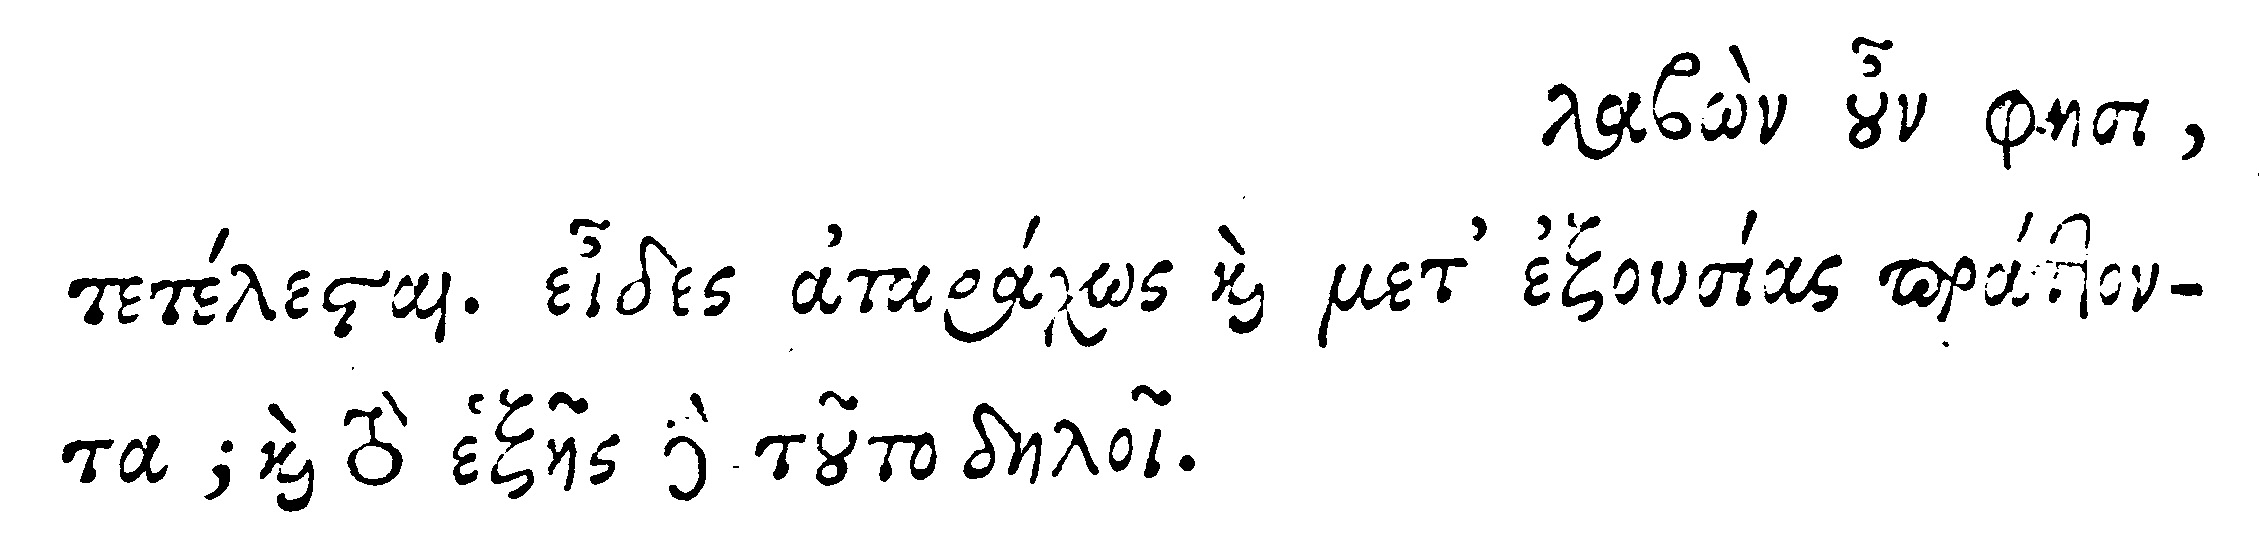 λαβὼν οὖν φησι,
τετέλεσται. εἶδες ἀταράχως καὶ μετ' ἐξουσίας πράττον-
τα ; καὶ τὸ ἑξῆς δὲ τοῦτο δηλοῖ.